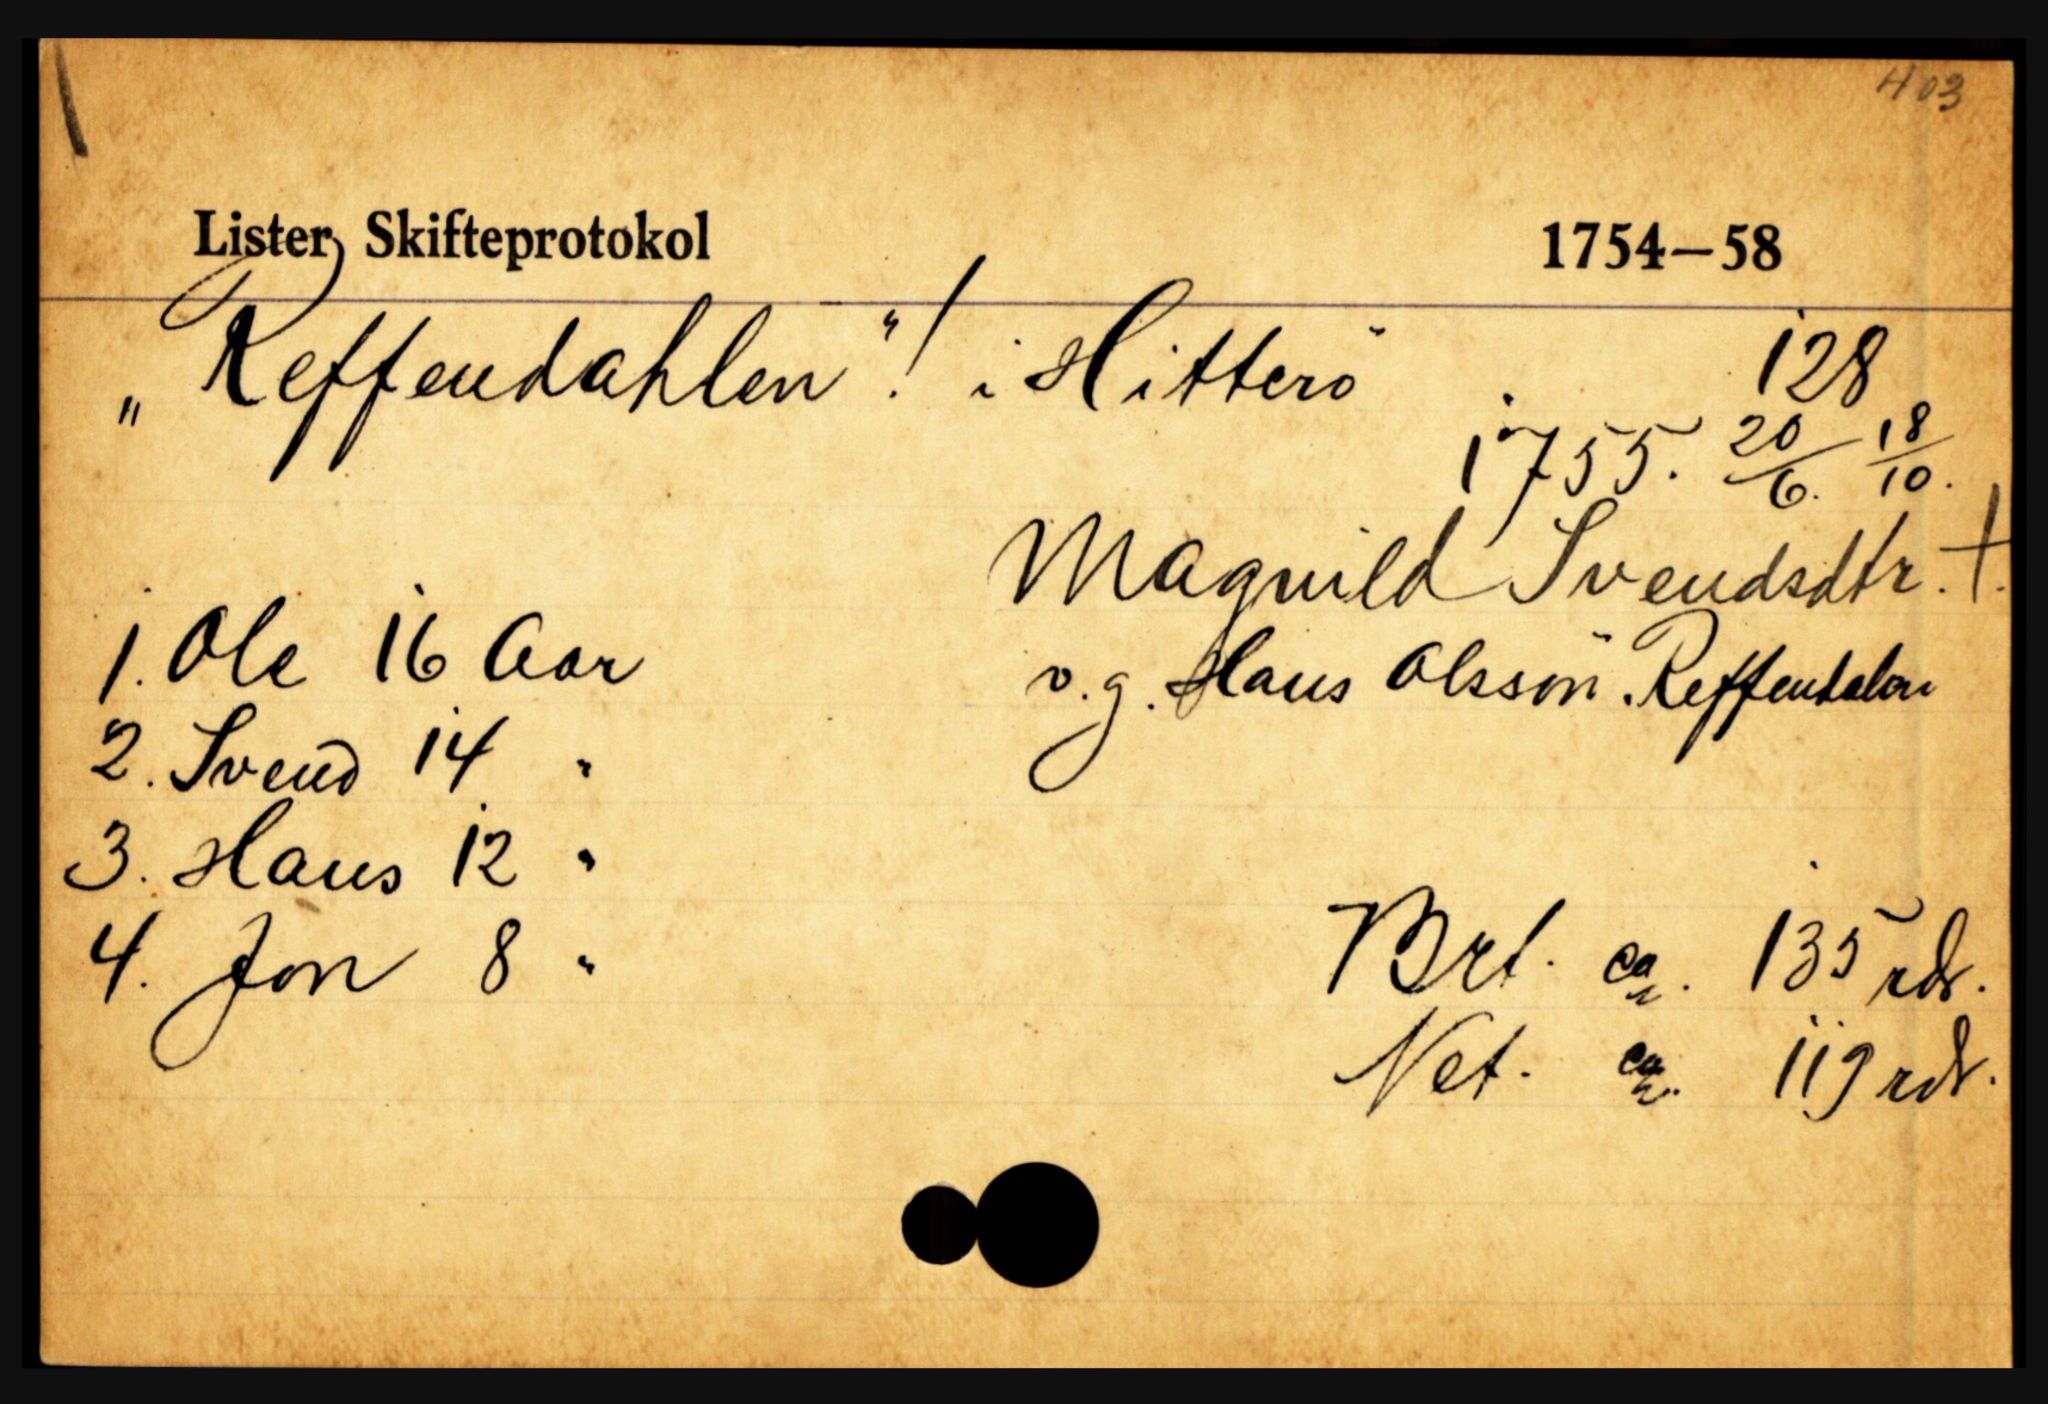 403
Lister Skifteprotokol 1754—58
„Reffendahlen“! i Hitterö 128
1755. 20/6. 18/10.
Magnild Svendsdtr. †.
v. g. Hans Olssön Reffendalen
1. Ole 16 Aar
2. Svend 14 "
3. Hans 12 "
4. Jon 8 "
Brt. ca. 135 rdr.
Net. ca. 119 rdr.